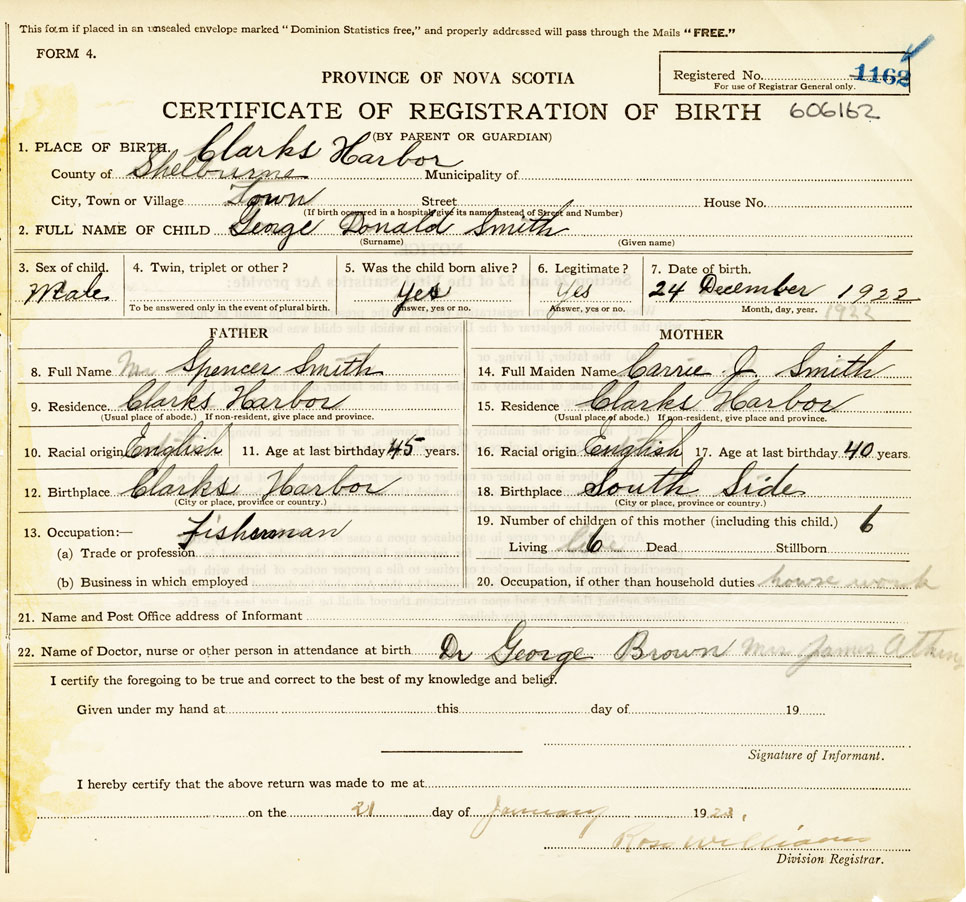 This form if placed in an unsealed envelope marked "Dominion Statistics free," and properly addressed will pass through the Mails "FREE."
FORM 4.
PROVINCE OF NOVA SCOTIA
Registered No. 1162
For use of Registrar General only.
CERTIFICATE OF REGISTRATION OF BIRTH 606162
(BY PARENT OR GUARDIAN)
1. PLACE OF BIRTH. Clarks Harbor
County of Shelburne Municipality of
City, Town or Village Town Street House No.
(If birth occurred in a hospital give its name instead of Street and Number)
2. FULL NAME OF CHILD George Donald Smith
(Surname) (Given name)
3. Sex of child. Male
4. Twin, triplet or other?
To be answered only in the event of plural birth.
5. Was the child born alive? Yes
Answer, yes or no.
6. Legitimate? Yes
Answer, yes or no.
7. Date of birth. 24 December 1922
Month, day, year. 1922
FATHER
8. Full Name Mr Spencer Smith
9. Residence Clarks Harbor
(Usual place of abode.) If non-resident, give place and province.
10. Racial origin English 11. Age at last birthday 45 years.
12. Birthplace Clarks Harbor
(City or place, province or country.)
13. Occupation:— Fisherman
(a) Trade or profession
(b) Business in which employed
MOTHER
14. Full Maiden Name Carrie J. Smith
15. Residence Clarks Harbor
(Usual place of abode.) If non-resident, give place and province.
16. Racial origin English 17. Age at last birthday 40 years.
18. Birthplace South Side
(City or place, province or country.)
19. Number of children of this mother (including this child.) 6
Living 6 Dead Stillborn
20. Occupation, if other than household duties house work
21. Name and Post Office address of Informant
22. Name of Doctor, nurse or other person in attendance at birth Dr George Brown Mrs James
I certify the foregoing to be true and correct to the best of my knowledge and belief.
Given under my hand at this day of 19
Signature of Informant.
I hereby certify that the above return was made to me at
on the 21 day of January 1923,
Williams
Division Registrar.